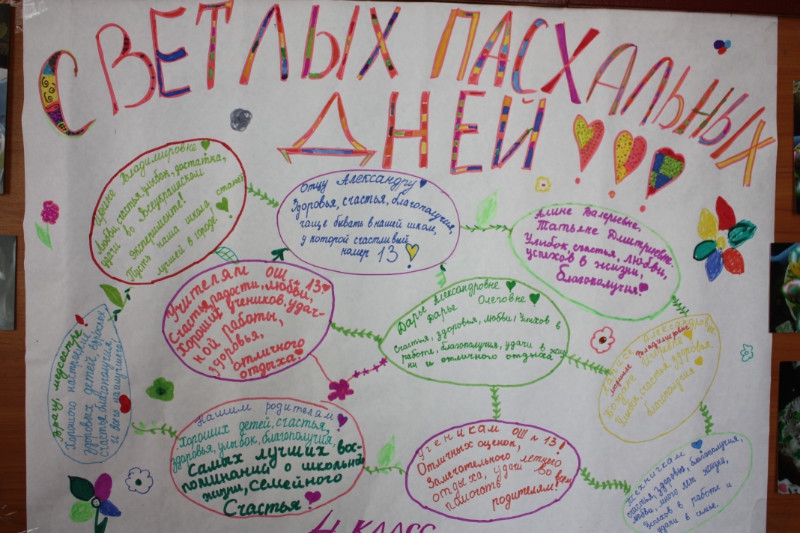 СВЕТЛЫХ ПАСХАЛЬНЫХ
ДНЕЙ!!!
Владимировне
Любви, счастья, улыбок, достатка,
удачи во Всеукраинском
эксперименте!
Пусть наша школа станет
лучшей в городе!
Отцу Александру
Здоровья, счастья, благополучия,
чаще бывать в нашей школе,
у которой счастливый
номер 13!
Алине Валериевне,
Татьяне Дмитриевне:
Улыбок, счастья, любви,
успехов в жизни,
благополучия!
Учителям ОШ №13
Счастья, радости, любви,
Хороших учеников, удач-
ной работы,
здоровья,
отличного
отдыха!
Дарье Александровне
Дарье Олеговне
Счастья, здоровья, любви! Успехов в
работе, благополучия, удачи в жиз-
ни и отличного отдыха
Улыбок, счастья, здоровья,
благополучия
Врачу, медсестре
Хорошего настроения,
Здоровых детей,
счастья, благополучия
и всего наилучшего!
Нашим родителям
Хороших детей, счастья,
здоровья, улыбок, благополучия,
Самых лучших вос-
поминаний о школьной
жизни, семейного
Счастья!
Ученикам ОШ №13!
Отличных оценок,
Замечательного летнего
отдыха, удачи во всём
помогать
родителям!
Техничкам
Счастья, здоровья, благополучия,
любви, много лет жизни,
Успехов в работе и
удачи в семье.
4 класс